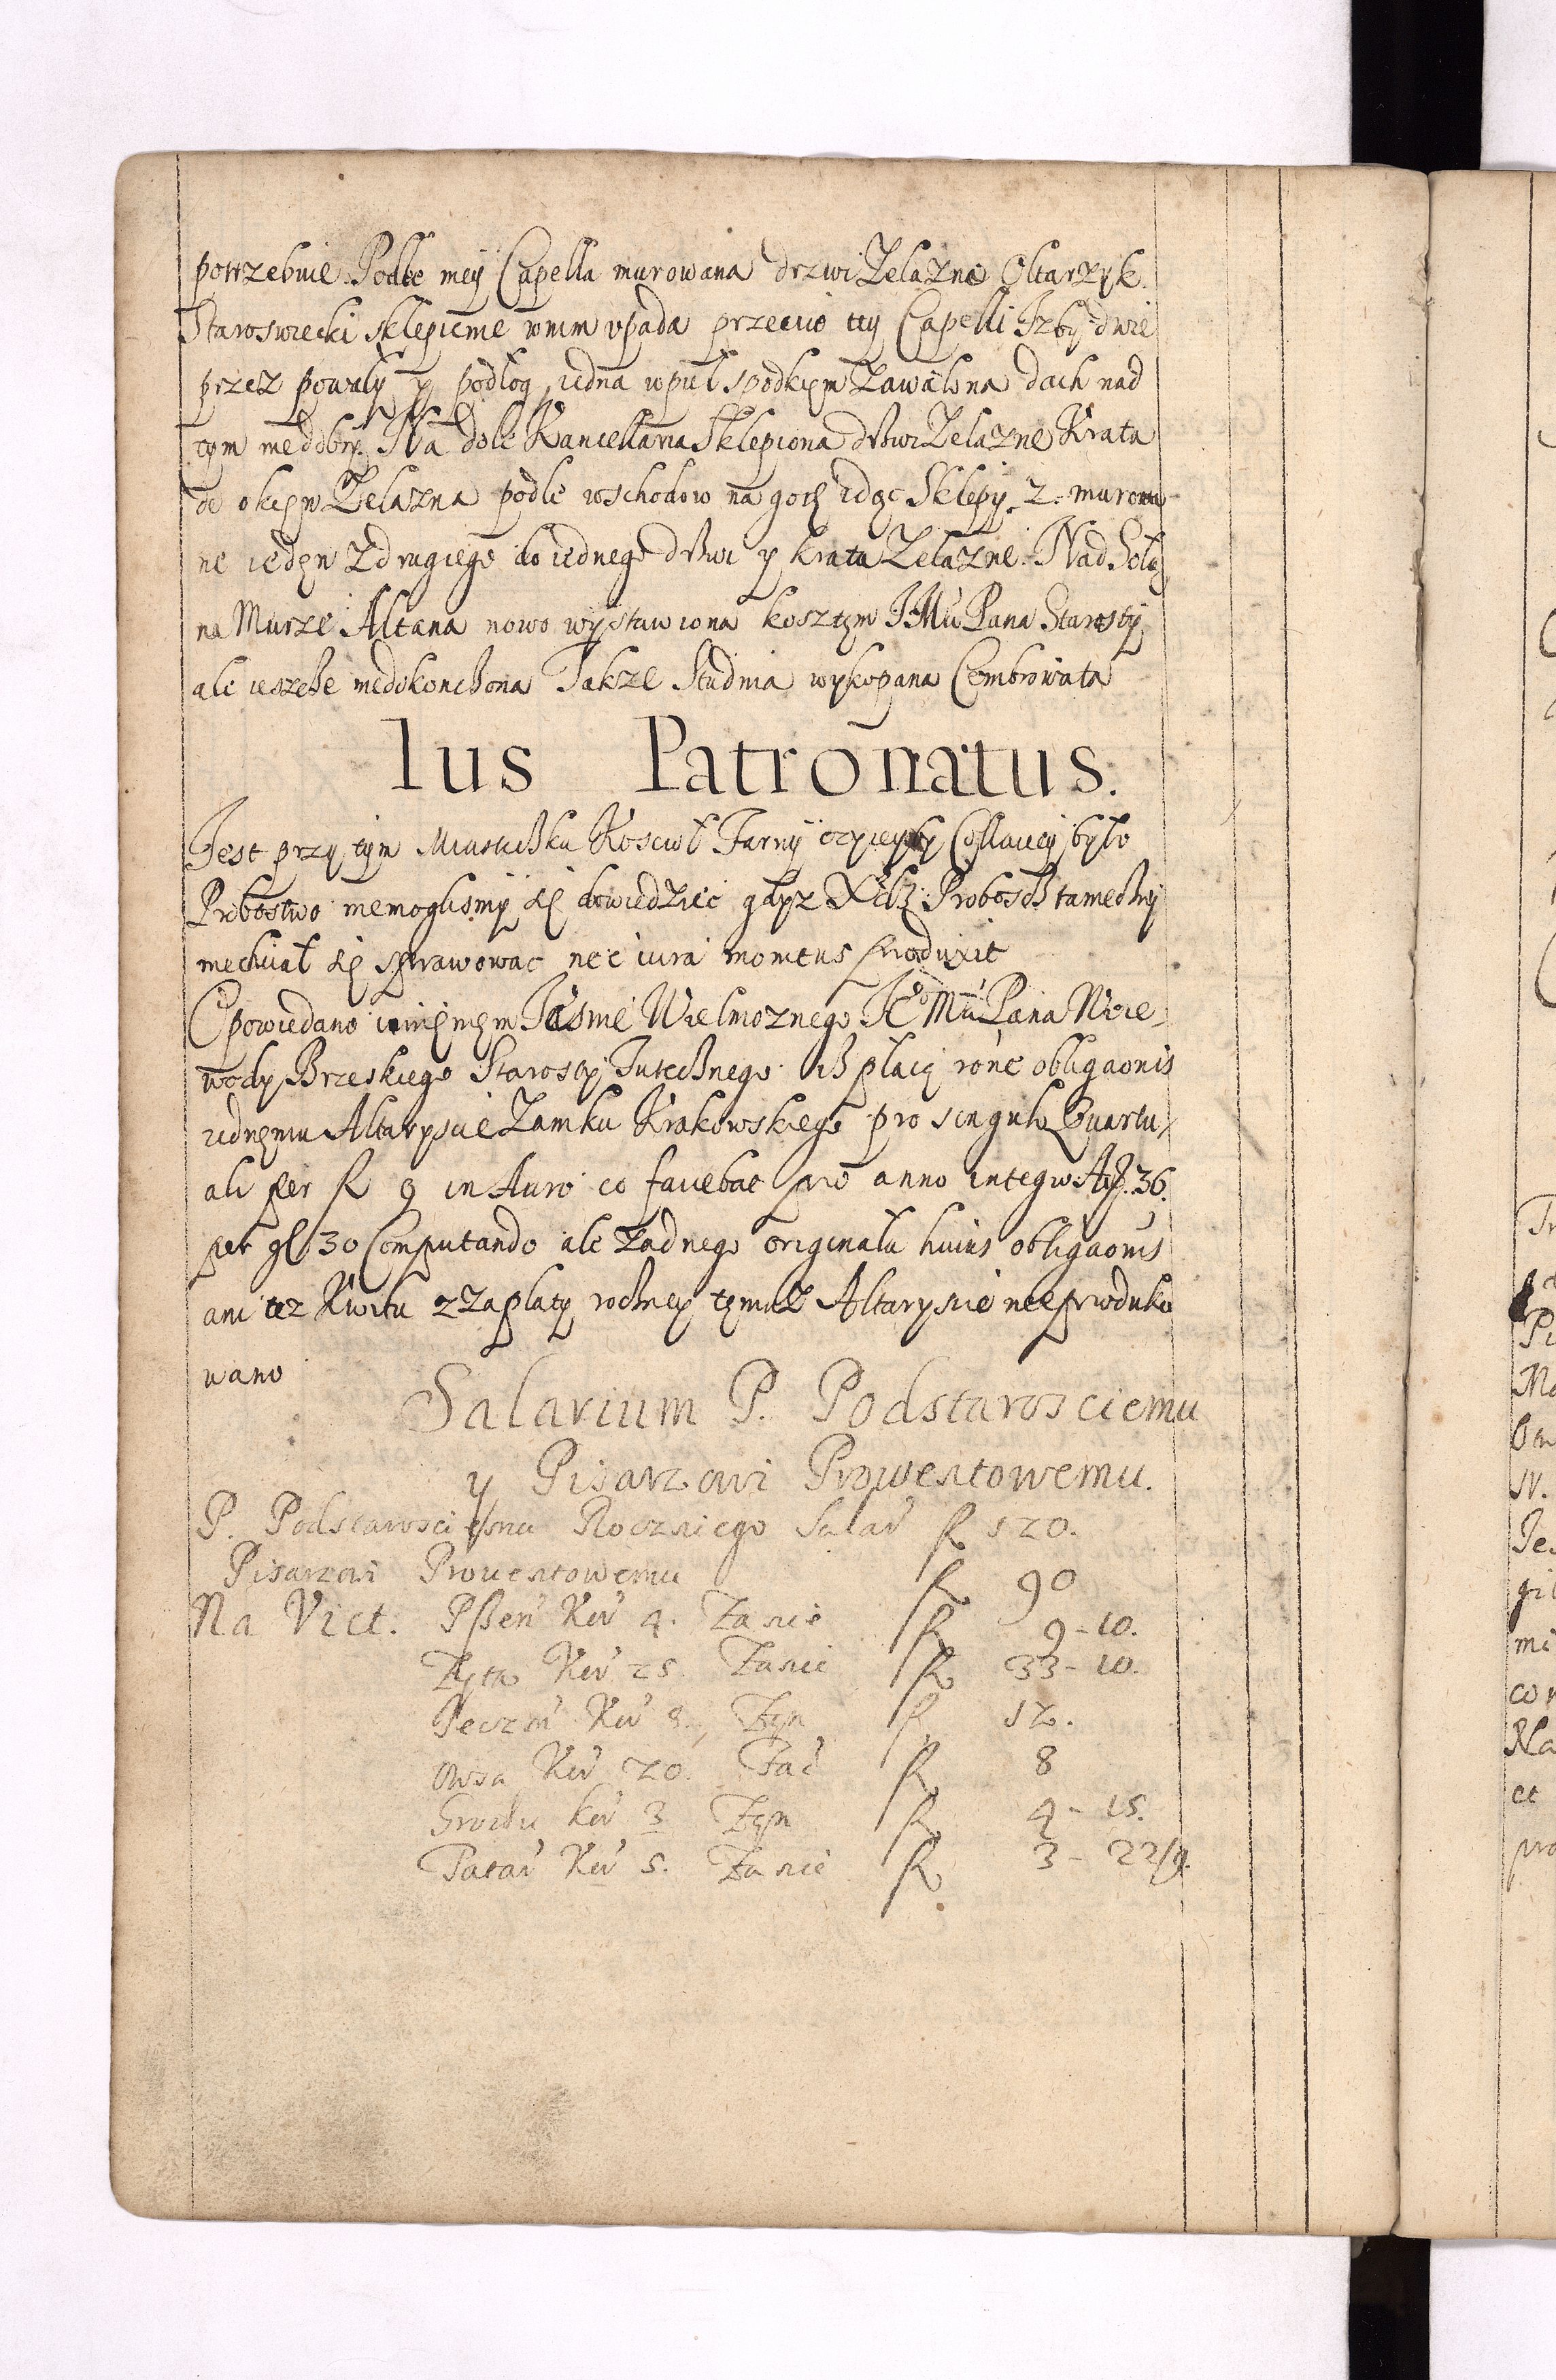 potrzebuie. Podle niey Capella murowana drzwi Zelazne Ołtarzyk
Staroswiecki sklepienie w nim upada przeciw tey Capelli Izby dwie
przez powały y podłog, iedna wpuł spodkiem zawalona dach nad
tym niedobry. Na dole Kancellaria Sklepiona drzwi Zelazne Krata
do okien Zelazna podle wschodow na gorę idąc Sklepy 2 murowa
ne ieden z drugiego do iednego drzwi y krata Zelazne. Nad Sołą
na Murze Altana nowo wystawiona kosztem IMci Pana Starosty
ale ieszcze niedokonczona Takze Studnia wykopana Cembrowata
Ius Patronatus.
Iest przy tym Miasteczku Koscioł Farny czyieyby Collaciey było
Probostwo niemoglismy się dowiedziec gdyz Xdz Proboszcz tameczny
niechciał się sprawowac nec iura monitus produxit
Opowiedano imieniem Iasnie Wielmoznego Ie° Mci Pana Woie-
wody Brzeskiego Starosty Tutecznego isz płacą rōne obligaōnis
iednemu Altaryscie Zamku Krakowskiego pro singulo Quartu-
ali per fl 9 in Auro co faciebat pro anno integro fl. 36.
per gl 30 Computando ale zadnego originału huius obligaōnis
ani tez Kwitu z zapłaty roczney temuz Altaryscie nieproduko
wano
Salarium P. Podstarosciemu
y Pisarzowi Prowentowemu.
P. Podstarosciemu Rocznego Salar fl 120.
Pisarzowi Prouentowemu fl 90
Na Vict. Pszen Kor 4. Zanie fl 9-10.
Zyta Kor 25. Zanie fl 33-10.
Ieczm Kor 8. Zyn fl 12.
Owsa Kor 20. Fac fl 8
Grochu kor 3 Zyn fl 4-15.
Tatar Kor 5. Zanie fl 3-22/9.